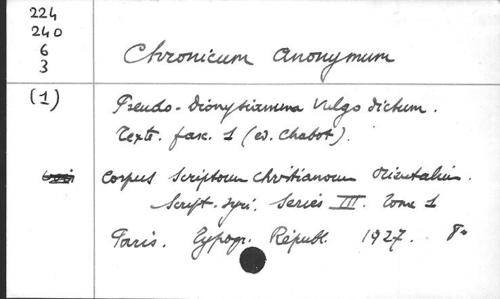 224
240
6
3
Chronicum Anonymum
(1)
Pseudo-Dionysianum vulgo dictum.
Texte. fasc. 1 (ed. Chabot).
Corpus Scriptorum Christianorum Orientalium.
Script. syri. Series III. Tome 1
Paris. Typogr. Républ. 1927. 8°